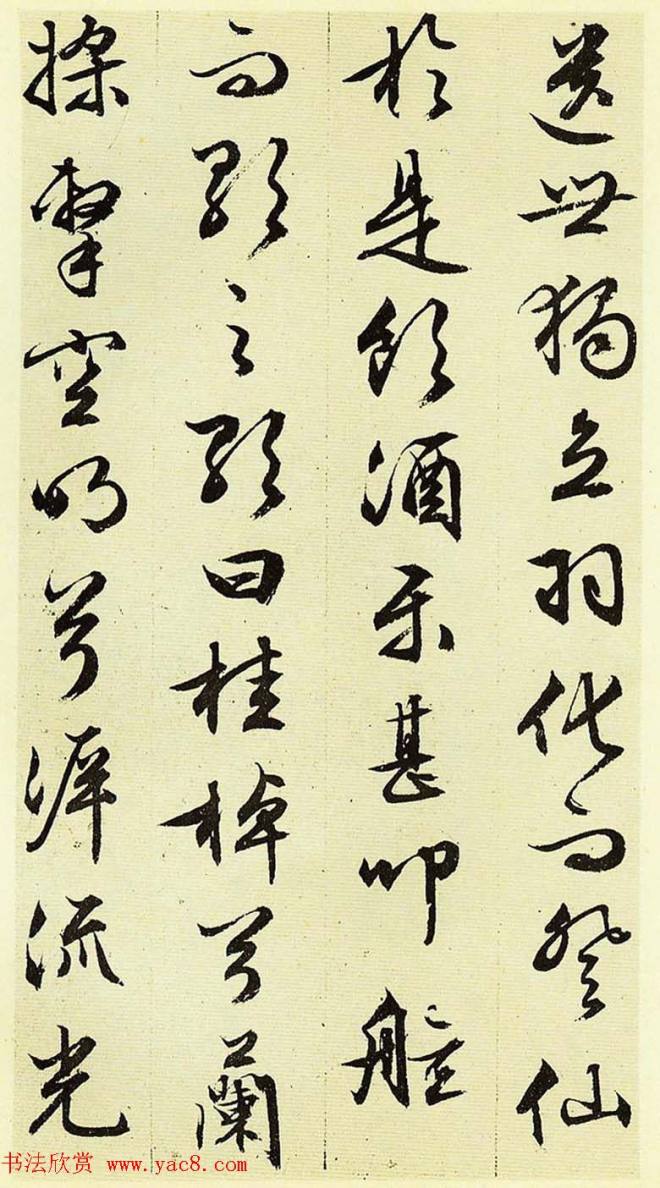 遺世獨立羽化而登仙
於是飲酒樂甚叩舷
而歌之歌曰桂棹兮蘭
槳擊空明兮泝流光
书法欣赏 www.yac8.com